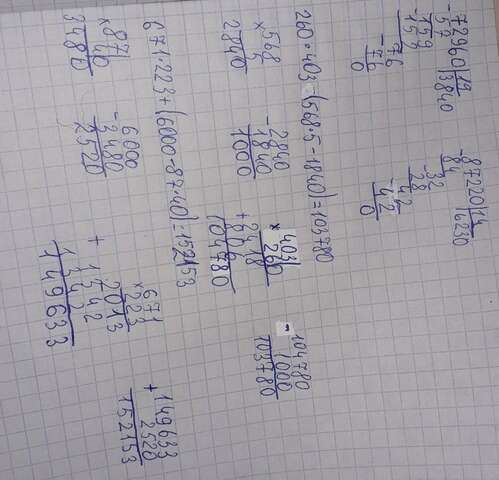 -72960|19
57 |3840
-159
152
-76
76
0
-87220|14
84 |6230
-32
28
-42
42
0
260·403-(568·5-1840)=103780
×568
5
2840
-2840
1840
1000
×403
260
2418
+806
104780
-104780
1000
103780
671·223+(6000-87·40)=152153
×87
40
3480
-6000
3480
2520
×671
223
2013
+1342
1342
149633
+149633
2520
152153